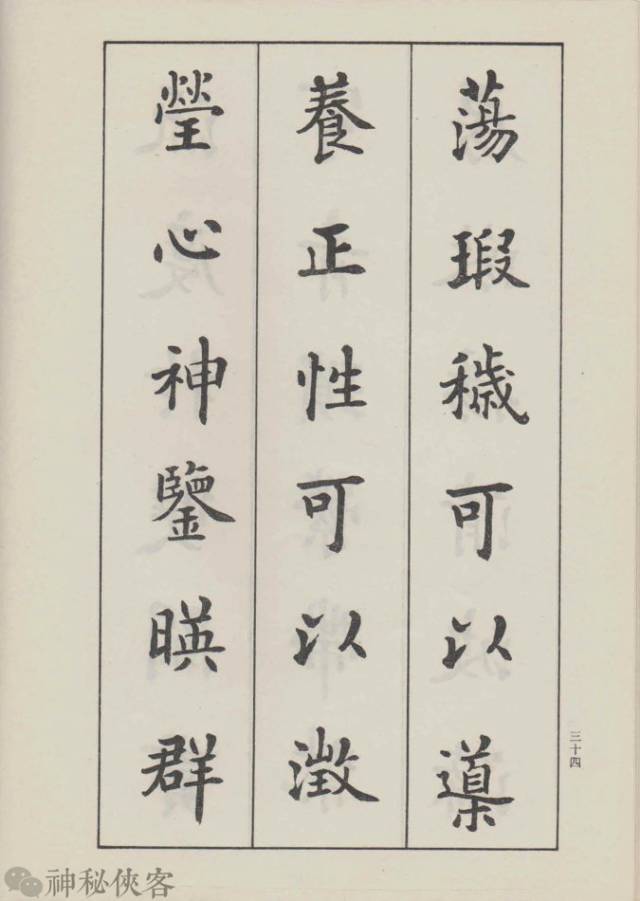 蕩瑕穢可以導
養正性可以澂
瑩心神鑒暎群
三十四
神秘俠客